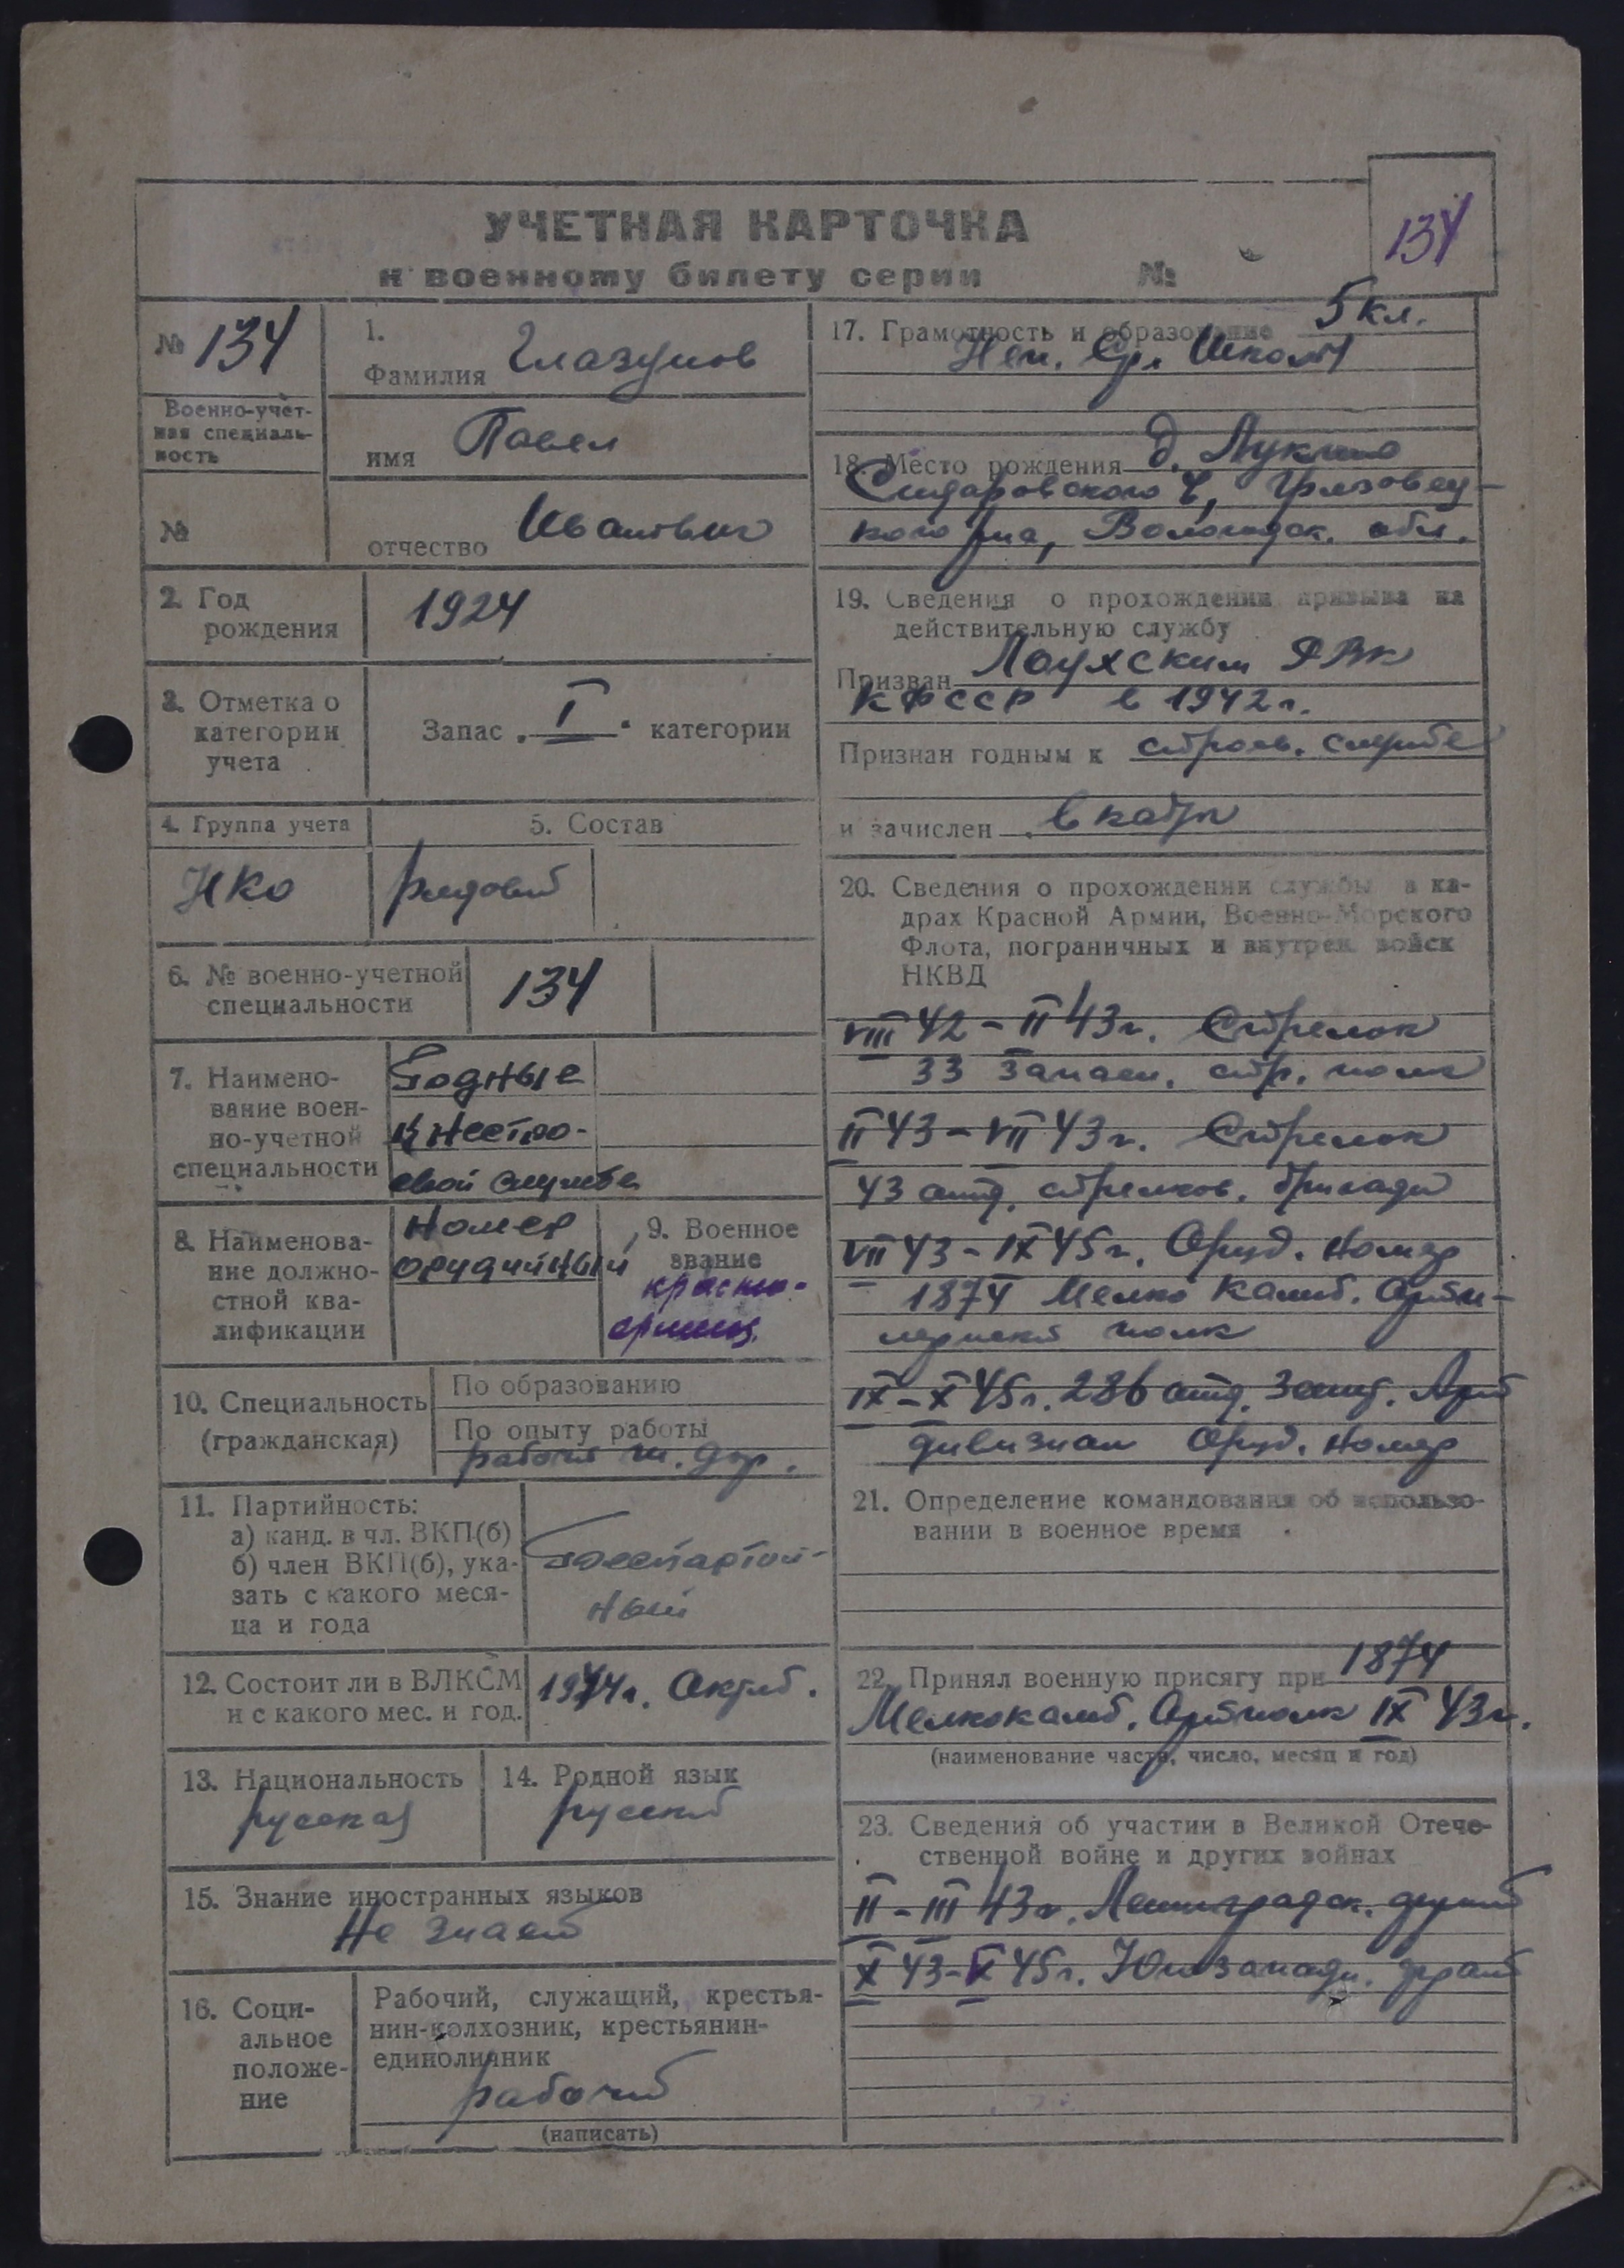 УЧЕТНАЯ КАРТОЧКА
к военному билету серии №
134
№ 134
Военно-учет-
ная специаль-
ность
№
1.
Фамилия Глазунов
имя Павел
отчество Иванович
2. Год
рождения
1924
3. Отметка о
категории
учета
Запас „ I “ категории
4. Группа учета
5. Состав
НКО
рядовой
6. № военно-учетной
специальности
134
7. Наимено-
вание воен-
но-учетной
специальности
Годные
к нестро-
евой службе
8. Наименова-
ние должно-
стной ква-
лификации
Номер
орудийный
9. Военное
звание
красно-
армеец
10. Специальность
(гражданская)
По образованию
По опыту работы
рабочий ж. дор.
11. Партийность:
а) канд. в чл. ВКП(б)
б) член ВКП(б), ука-
зать с какого меся-
ца и года
Беспартий-
ный
12. Состоит ли в ВЛКСМ
и с какого мес. и год.
1944г. Октяб.
13. Национальность
русский
14. Родной язык
русский
15. Знание иностранных языков
Не знает
16. Соци-
альное
положе-
ние
Рабочий, служащий, крестья-
нин-колхозник, крестьянин-
единоличник
рабочий
(написать)
17. Грамотность и образование 5 кл.
Неп. Ср. Школы
18. Место рождения д.
Сидоровского с, Грязовец-
кого р-на, Вологодск. обл.
19. Сведения о прохождении призыва на
действительную службу
Призван Лоухским РВК
КФССР в 1942г.
Признан годным к строев. службе
и зачислен в кадры
20. Сведения о прохождении службы в ка-
драх Красной Армии, Военно-Морского
Флота, пограничных и внутрен. войск
НКВД
VIII 42 – II 43г. Стрелок
33 Запасн. стр. полк
II 43 – VII 43г. Стрелок
43 отд. стрелков. бригады
VII 43 – IX 45г. Оруд. Номер
1874 Мелко Калиб. Арти-
лерийский полк
IX – X 45г. 286 отд. Зенит. Арт
дивизион Оруд. Номер
21. Определение командования об использо-
вании в военное время
22. Принял военную присягу при 1874
Мелкокалиб. Артполк IX 43г.
(наименование части, число, месяц и год)
23. Сведения об участии в Великой Отече-
ственной войне и других войнах
II – III 43г. Ленинградск. фронт
X 43 – V 45г. Югозападн. фронт